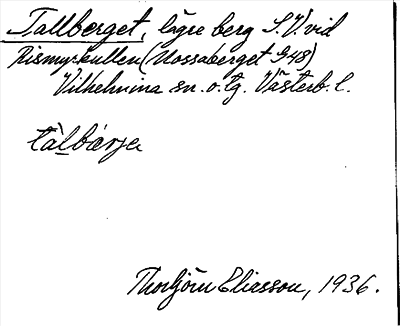 Tallberget, lägre berg S.V. vid
Rismyrkullen (Mossaberget 948)
Vilhelmina sn. o. tg. Västerb. l.
tàlbærje
Thorbjörn Eliasson, 1936.